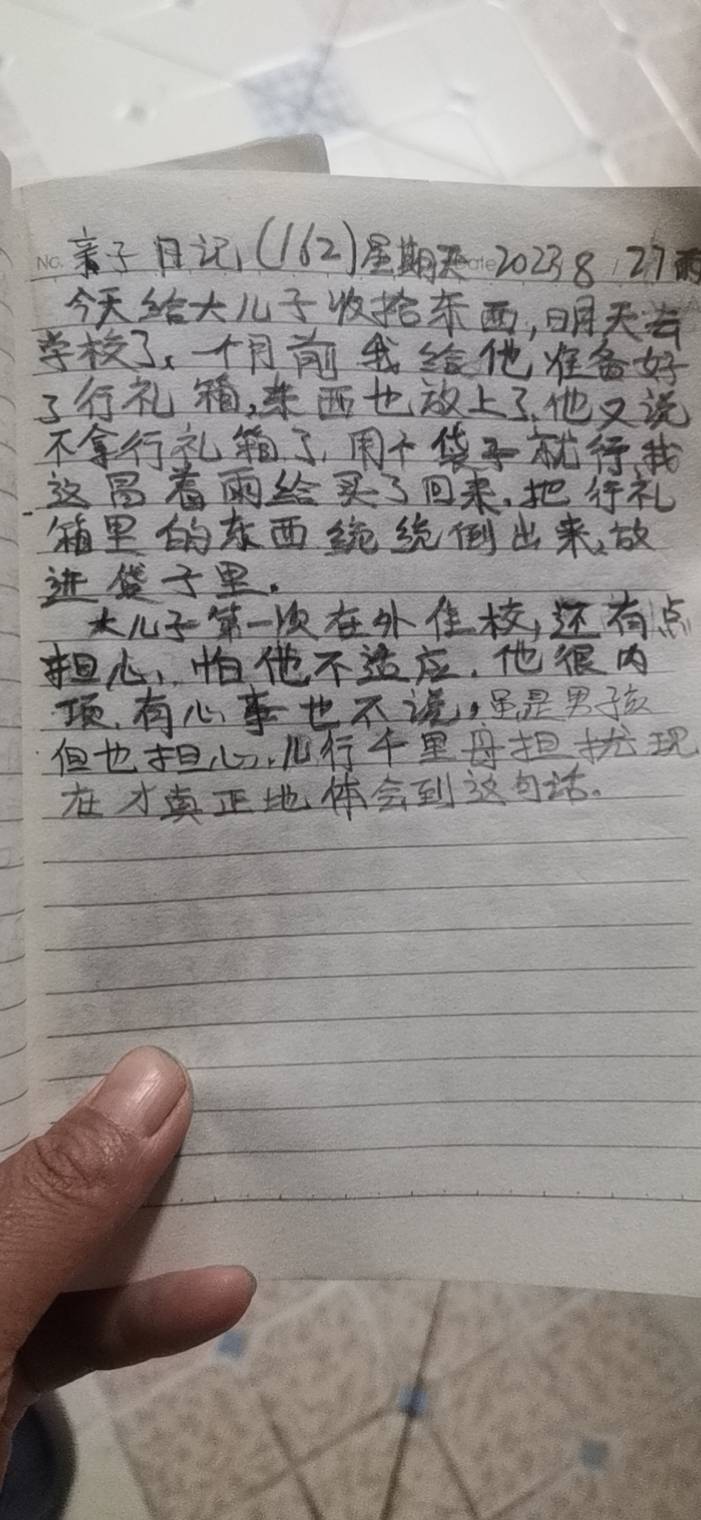 No. 亲子日记(162)星期天 Date 2023 8 / 27 雨
今天给大儿子收拾东西,明天去
学校了、一个月前我给他准备好
了行礼箱,东西也放上了.他又说
不拿行礼箱了.用个袋子就行,我
这冒着雨给买了回来.把行礼
箱里的东西统统倒出来,放
进袋子里。
大儿子第一次在外住校,还有点
担心,怕他不适应.他很内
项.有心事也不说,虽是男子孩
但也担心.儿行千里母担扰现
在才真正地体会到这句话。